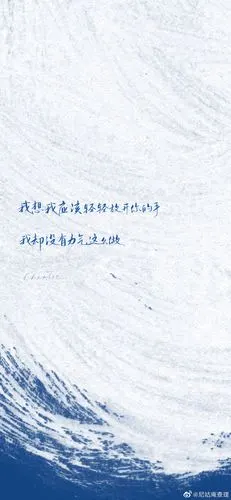 我想我应该轻轻放开你的手
我却没有力气这么做
@尼姑庵查理